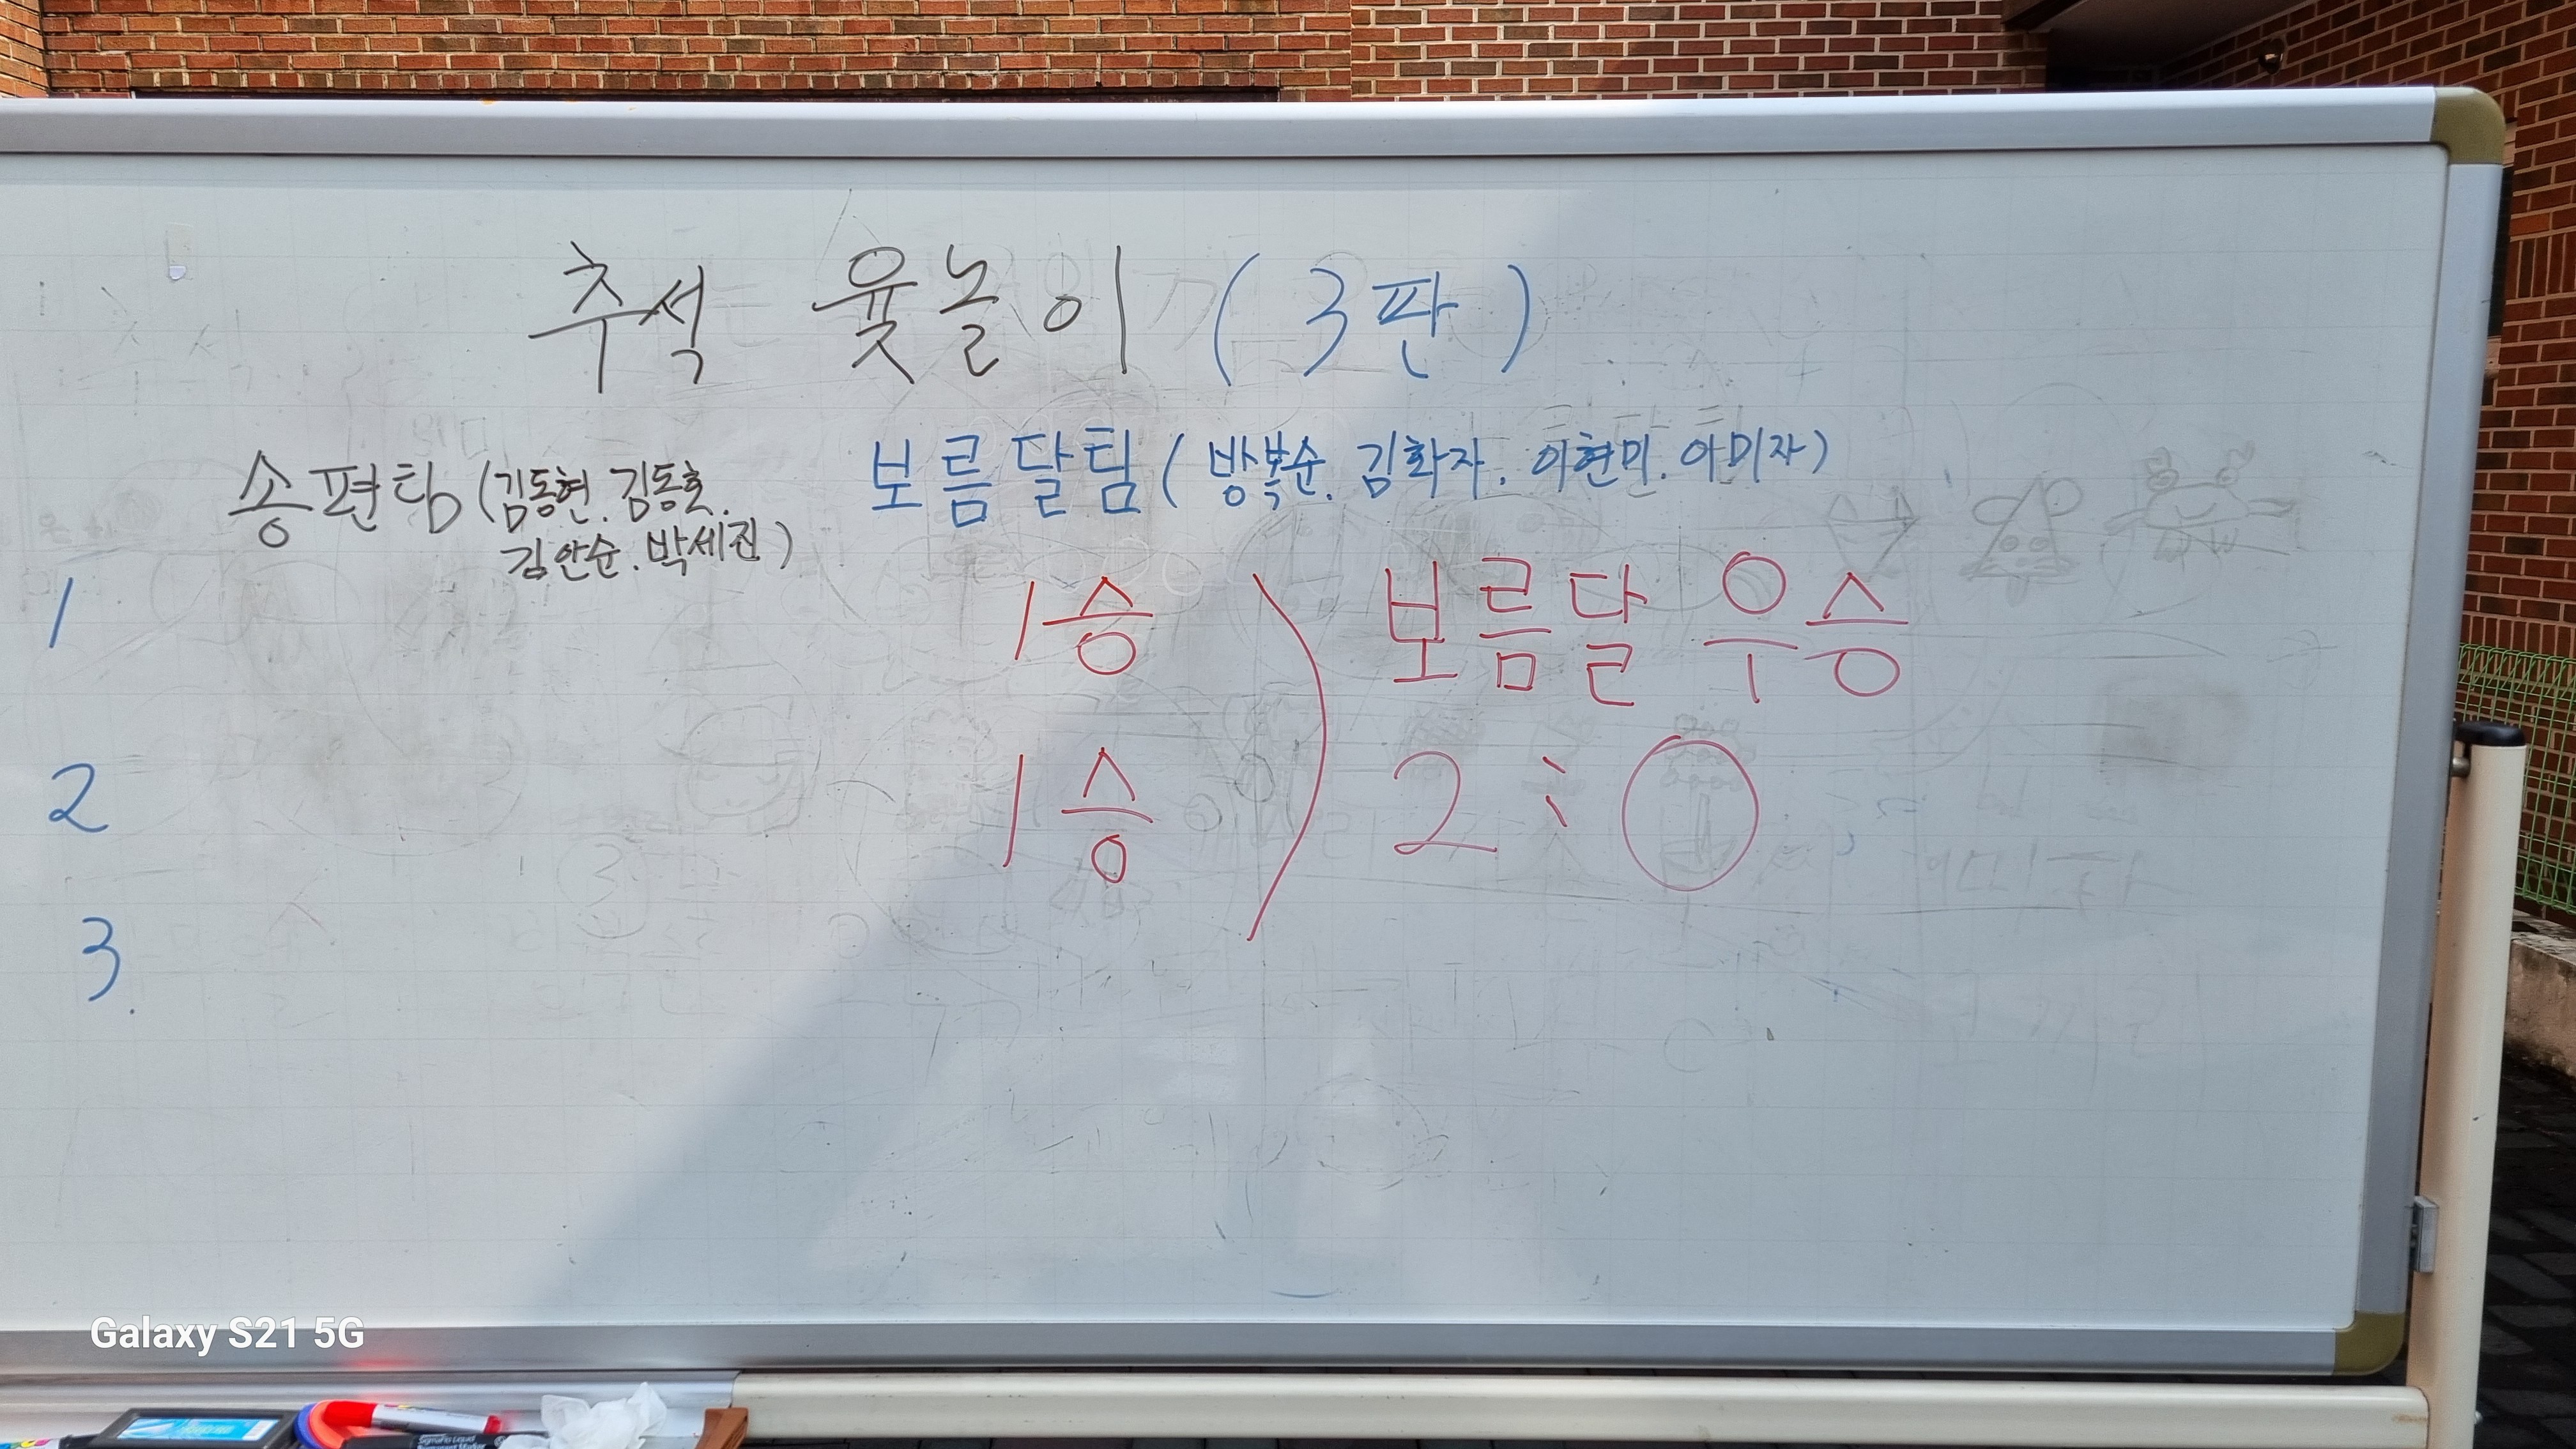 추석 윷놀이 (3판)
송편팀 (김동현. 김동호.
김안순. 박세진)
보름달팀 (방복순. 김화자. 이현미. 이미자)
1 1승 보름달 우승
2 1승 2 : 0
3.
Galaxy S21 5G